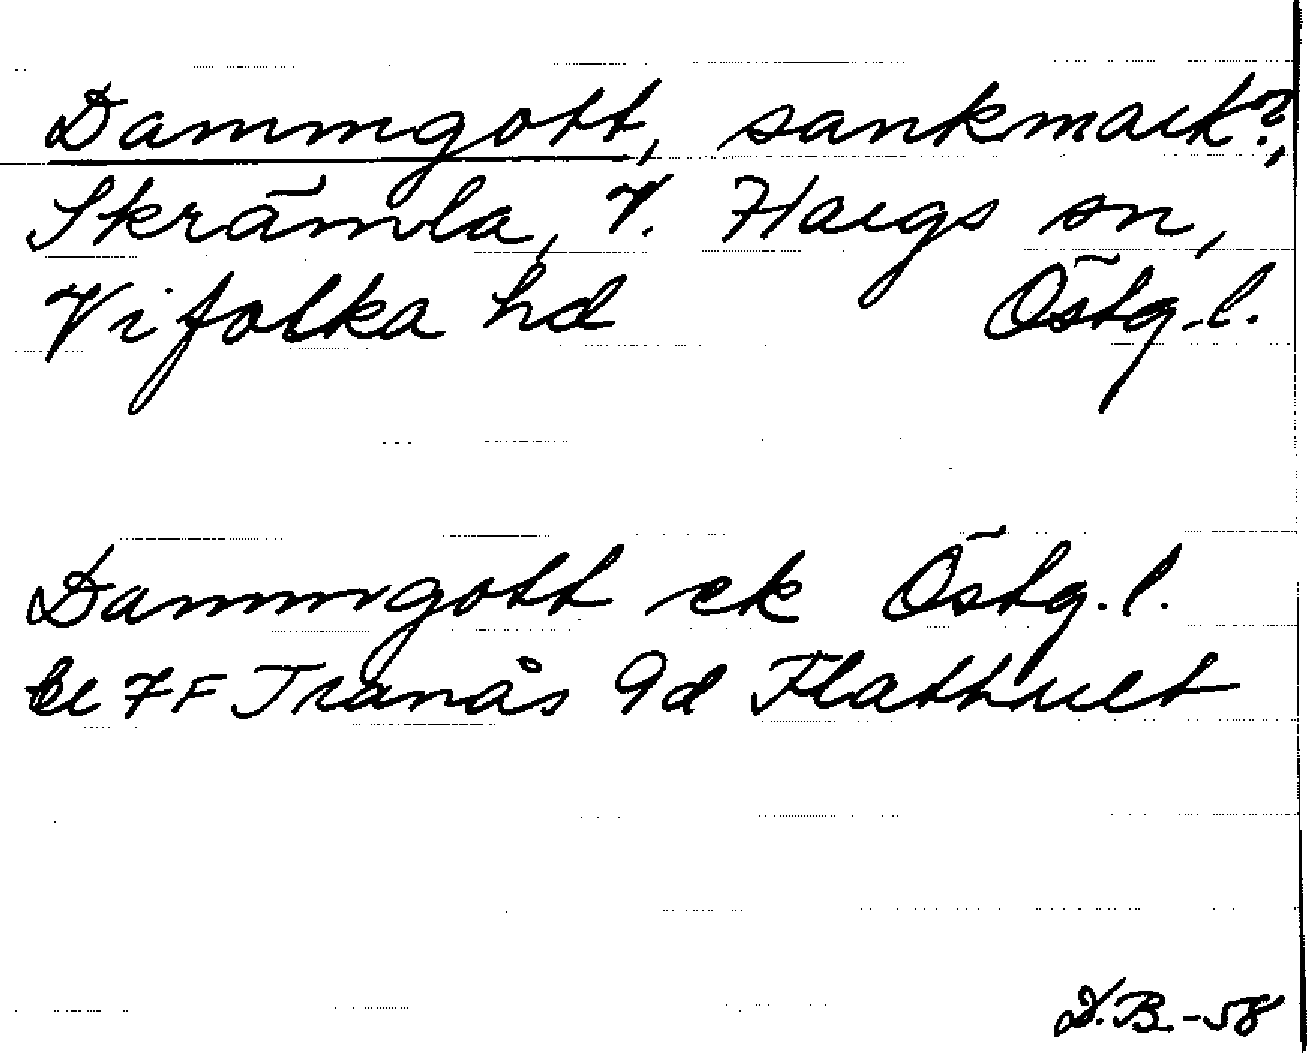 Dammgott, sankmark?,
Skrämla, V. Hargs sn,
Vifolka hd Östg.l.
Dammgott ek Östg.l.
bl 7F Tranås 9d Flathult
D.B.-58